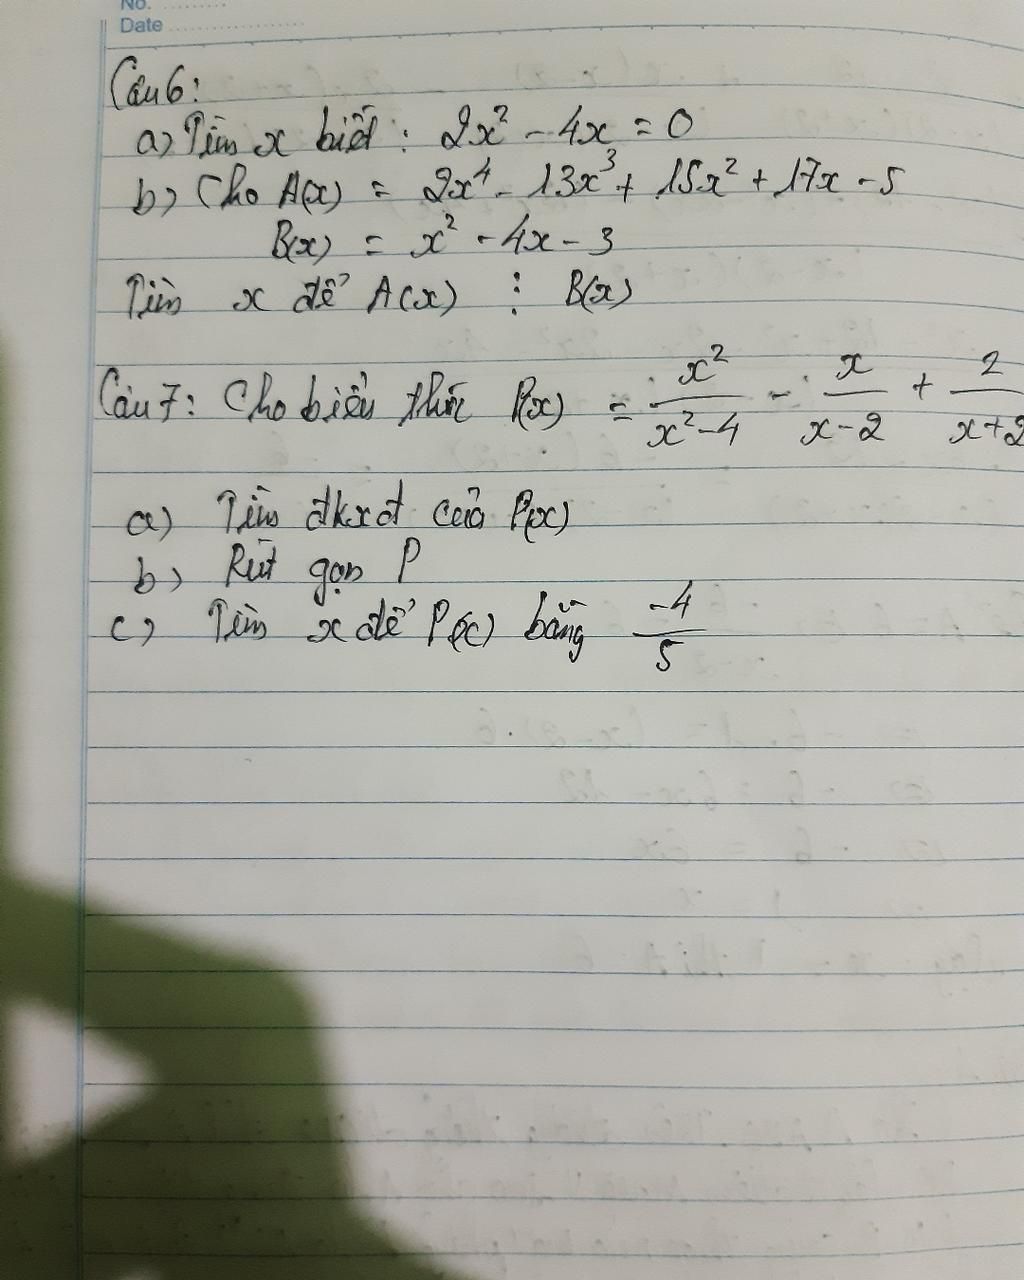 No. ..........
Date ......................
Câu 6:
a) Tìm x biết : 2x² - 4x = 0
b) Cho A(x) = 2x⁴ - 13x³ + 15x² + 17x - 5
B(x) = x² - 4x - 3
Tìm x để A(x) ⋮ B(x)
Câu 7: Cho biểu thức P(x) = x²/(x²-4) - x/(x-2) + 2/(x+2)
a) Tìm đkxđ của P(x)
b) Rút gọn P
c) Tìm x để P(x) bằng -4/5